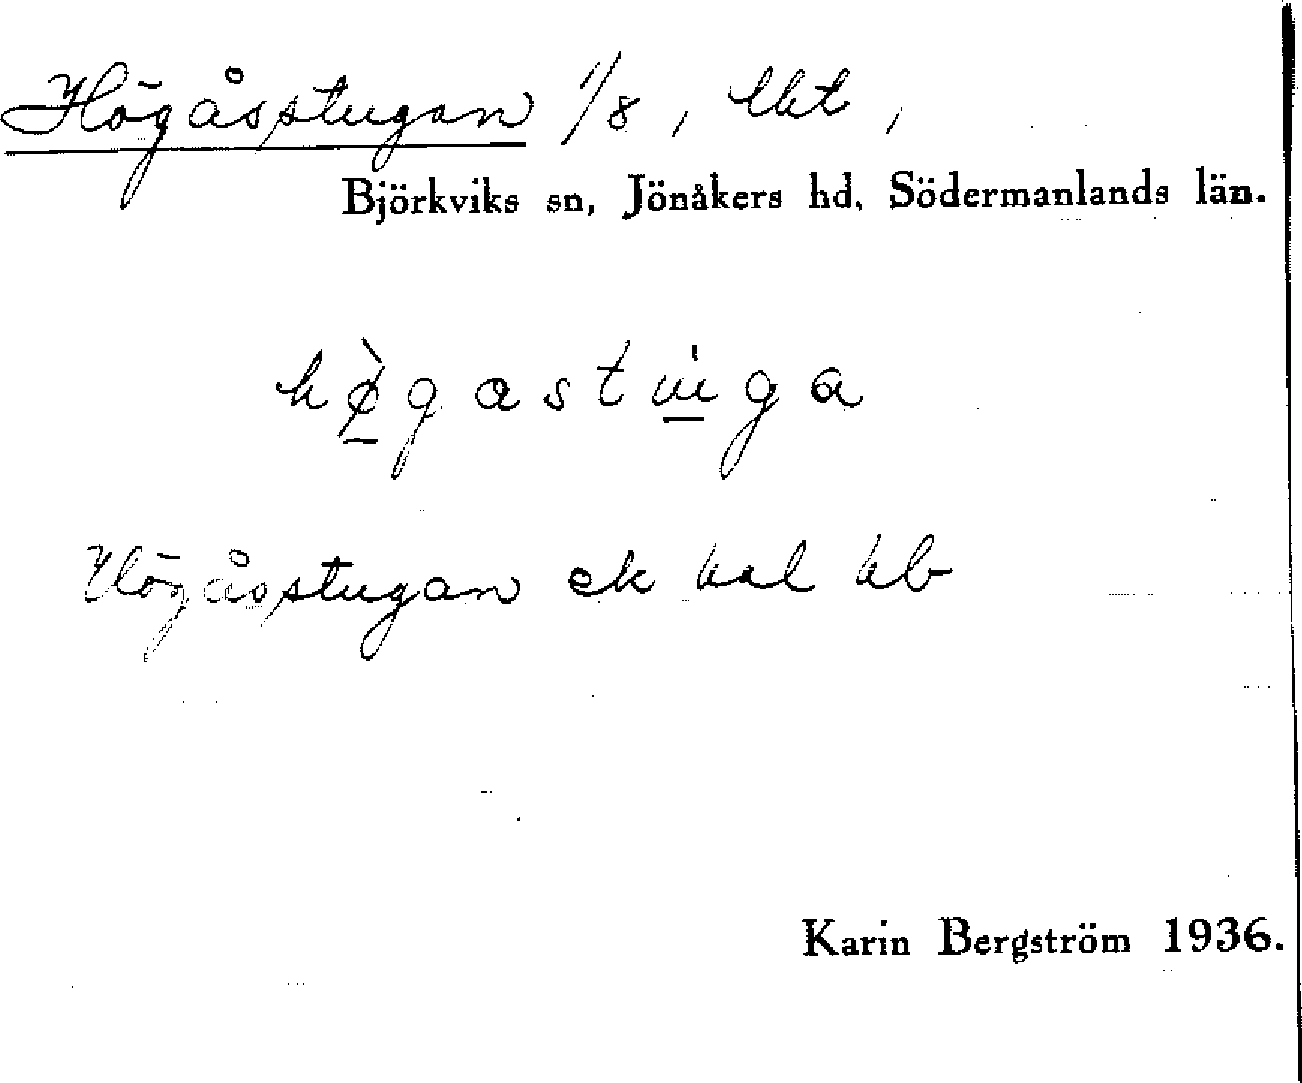 Högåsstugan 1/8, lht,
Björkviks sn, Jönåkers hd, Södermanlands län.
hø̀gastuga
Högåsstugan ek hb
Karin Bergström 1936.